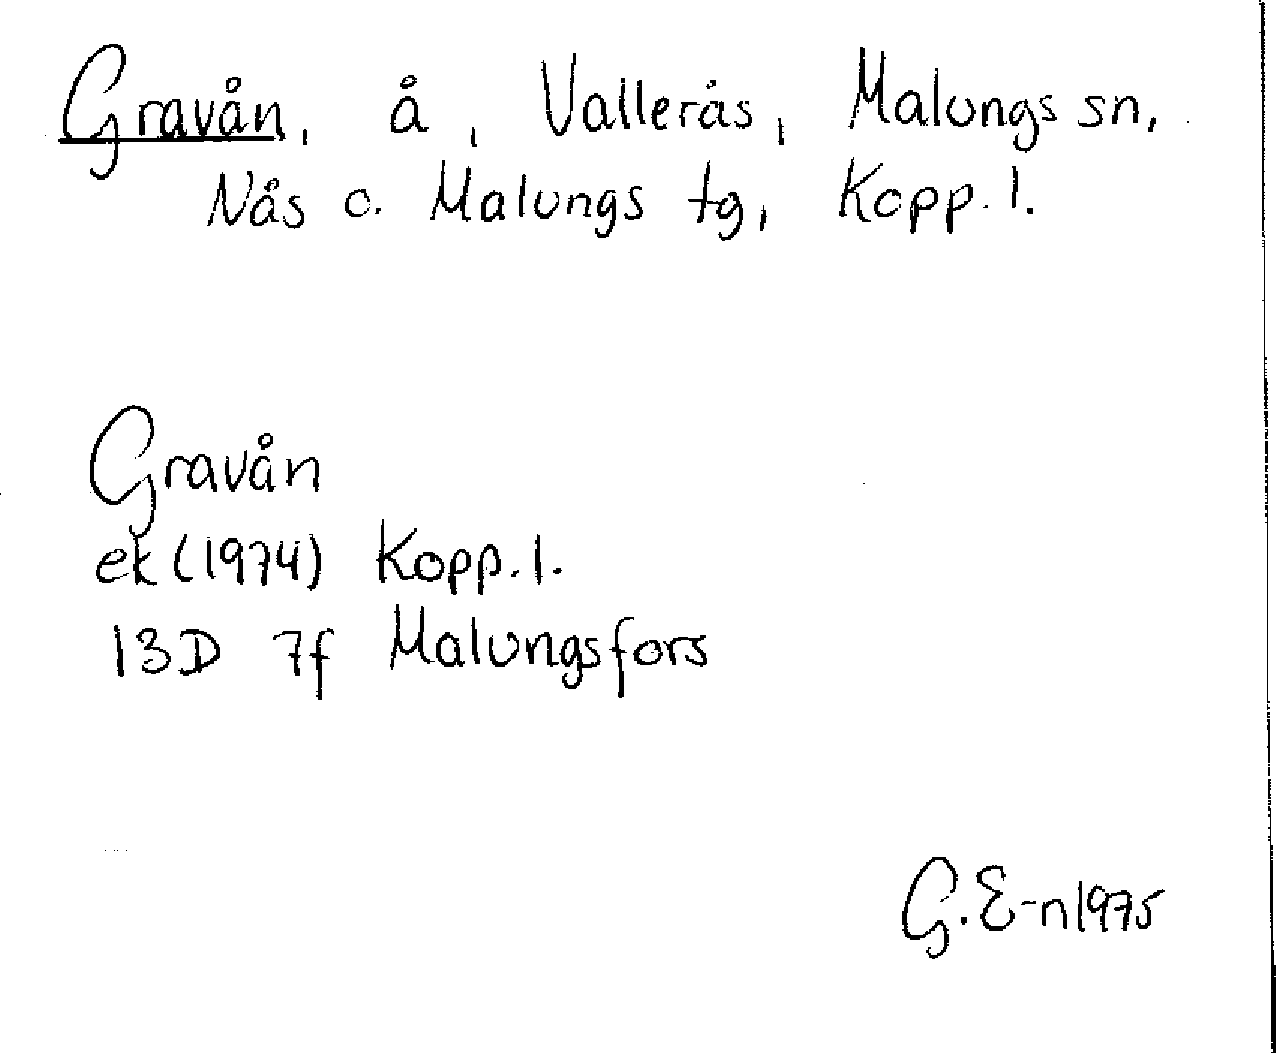 Gravån, å, Vallerås, Malungs sn,
Nås o. Malungs tg, Kopp. l.
Gravån
ek (1974) Kopp. l.
13D 7f Malungsfors
G. E-n 1975